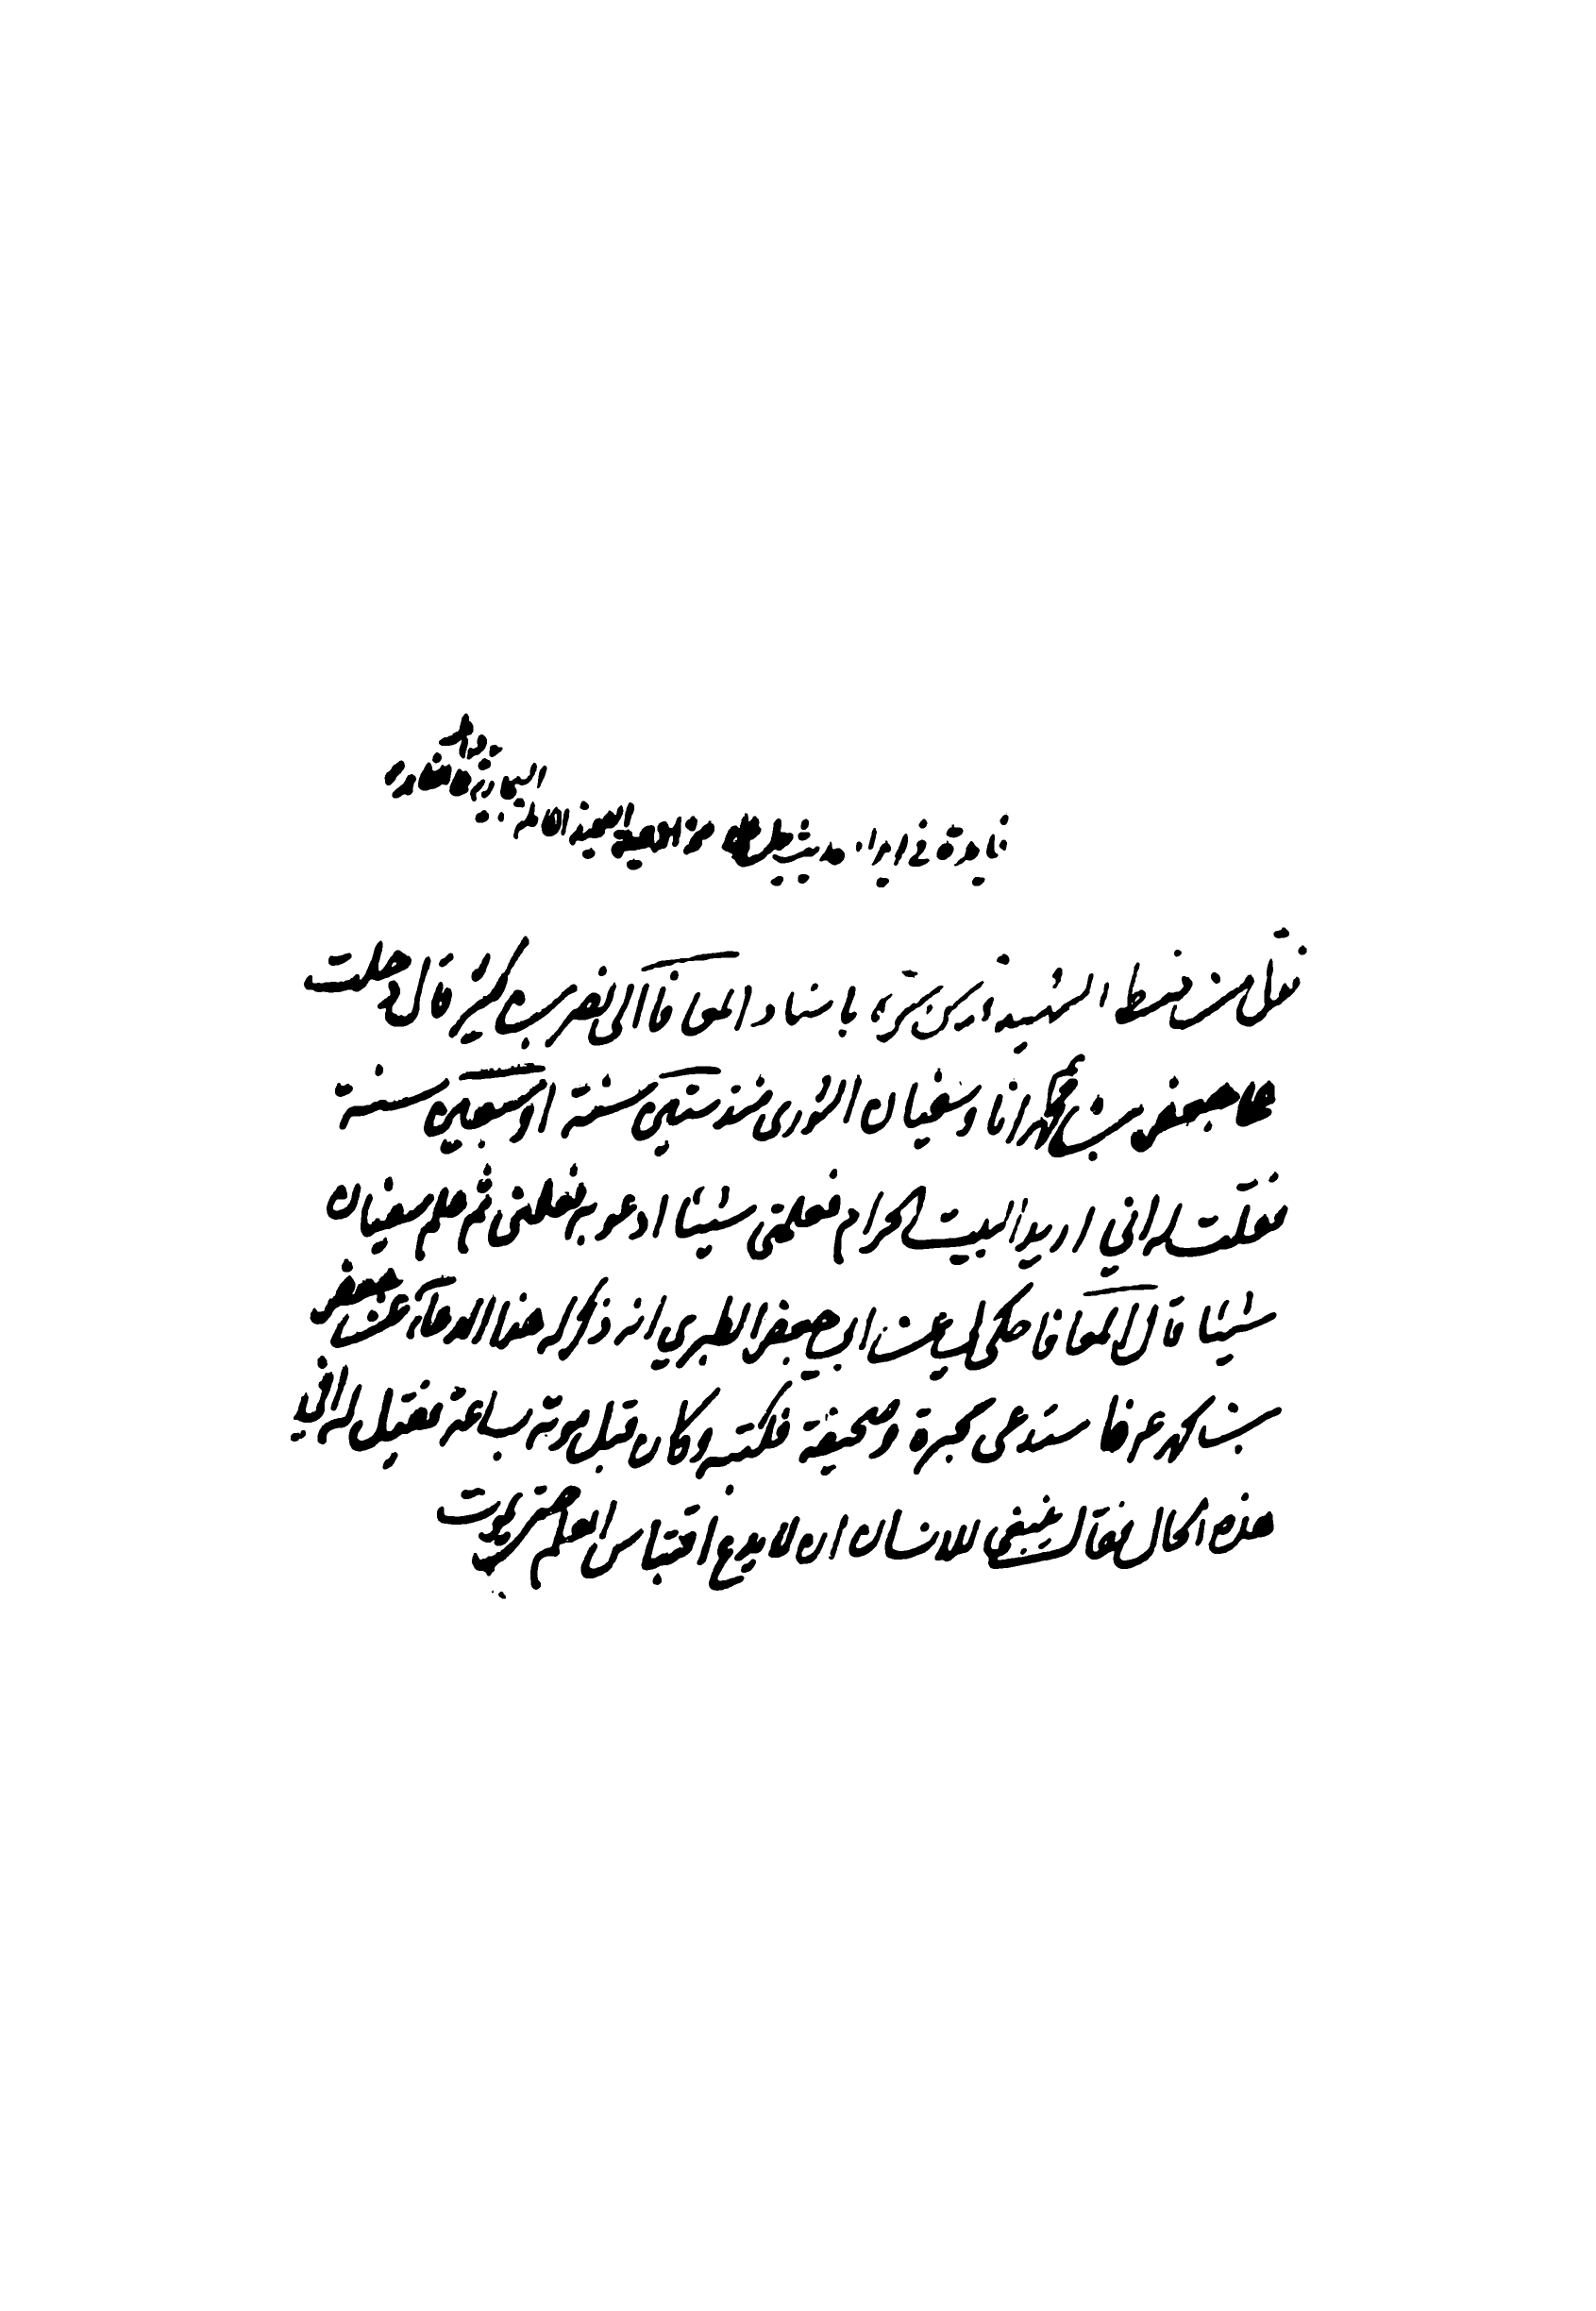 فايدة في ايراد حديث
نقل من خط الشهيد قدس سره باسناد المعافا الى نصر بن كثير قال دخلت
على جعفر بن محمد انا وسفيان الثوري منذ ستين سنة او سبعين سنة
فقلت له اني اريد البيت الحرام فعلمني شيئا ادعو به فعلمني ثم علم سفيان
شيئا قال المعافا حكى لي عن ابي جعفر الطبري انه ذكر له هذا الدعاء عن جعفر
بن محمد ع فاستدعى محبرة وصحيفة فكتبه وكان قبل موته بساعة فقيل له افي
هذه الحال فقال ينبغي للانسان ان لا يدع اقتباس العلم حتى يموت